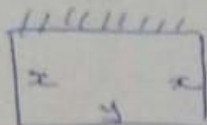 x x
y